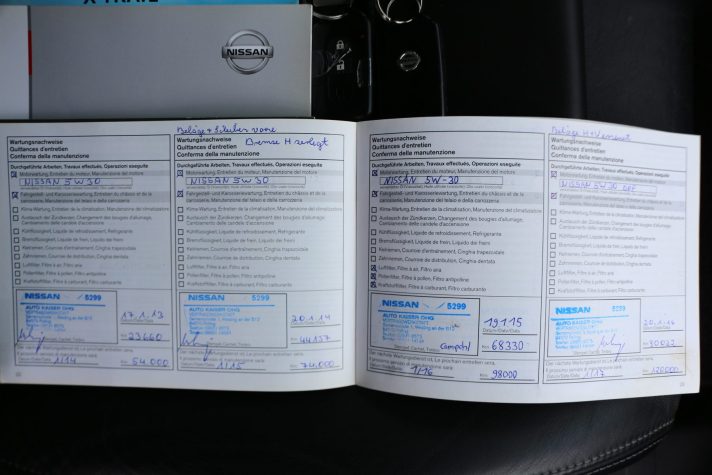 X-TRAIL
NISSAN
Wartungsnachweise
Quittances d'entretien
Conferma della manutenzione
Durchgeführte Arbeiten, Travaux effectués, Operazioni eseguite
Motorwartung, Entretien du moteur, Manutenzione del motore
NISSAN 5W30
Fahrgestell- und Karosseriewartung, Entretien du châssis et de la
carrosserie, Manutenzione del telaio e della carrozzeria
Klima-Wartung, Entretien du climatiseur, Manutenzione del climatizzatore
Austausch der Zündkerzen, Changement des bougies d'allumage,
Cambiamento delle candele d'accensione
Kühlflüssigkeit, Liquide de refroidissement, Refrigerante
Bremsflüssigkeit, Liquide de freins, Liquido dei freni
Keilriemen, Courroie d'entraînement, Cinghia trapezoidale
Zahnriemen, Courroie de distribution, Cinghia dentata
Luftfilter, Filtre à air, Filtro aria
Pollenfilter, Filtre à pollen, Filtro antipolline
Kraftstofffilter, Filtre à carburant, Filtro carburante
NISSAN 5299
AUTO KAISER OHG
17.1.13
Datum/Date/Data
Km 23660
Stempel, Cachet, Timbro
Der nächste Wartungsdienst ist, Le prochain entretien sera
Il prossimo servizio di manutenzione sarà
Datum/Date/Data 1/14 Km 54.000
Beläge + Scheiben vorne
Wartungsnachweise
Quittances d'entretien
Conferma della manutenzione
Bremse H zerlegt
Durchgeführte Arbeiten, Travaux effectués, Operazioni eseguite
Motorwartung, Entretien du moteur, Manutenzione del motore
NISSAN 5W30
Fahrgestell- und Karosseriewartung, Entretien du châssis et de la
carrosserie, Manutenzione del telaio e della carrozzeria
Klima-Wartung, Entretien du climatiseur, Manutenzione del climatizzatore
Austausch der Zündkerzen, Changement des bougies d'allumage,
Cambiamento delle candele d'accensione
Kühlflüssigkeit, Liquide de refroidissement, Refrigerante
Bremsflüssigkeit, Liquide de freins, Liquido dei freni
Keilriemen, Courroie d'entraînement, Cinghia trapezoidale
Zahnriemen, Courroie de distribution, Cinghia dentata
Luftfilter, Filtre à air, Filtro aria
Pollenfilter, Filtre à pollen, Filtro antipolline
Kraftstofffilter, Filtre à carburant, Filtro carburante
NISSAN 5299
AUTO KAISER OHG
20.1.14
Datum/Date/Data
Km 44137
Stempel, Cachet, Timbro
Der nächste Wartungsdienst ist, Le prochain entretien sera
Il prossimo servizio di manutenzione sarà
Datum/Date/Data 1/15 Km 74.000
Wartungsnachweise
Quittances d'entretien
Conferma della manutenzione
Durchgeführte Arbeiten, Travaux effectués, Operazioni eseguite
Motorwartung, Entretien du moteur, Manutenzione del motore
NISSAN 5W-30
Fahrgestell- und Karosseriewartung, Entretien du châssis et de la
carrosserie, Manutenzione del telaio e della carrozzeria
Klima-Wartung, Entretien du climatiseur, Manutenzione del climatizzatore
Austausch der Zündkerzen, Changement des bougies d'allumage,
Cambiamento delle candele d'accensione
Kühlflüssigkeit, Liquide de refroidissement, Refrigerante
Bremsflüssigkeit, Liquide de freins, Liquido dei freni
Keilriemen, Courroie d'entraînement, Cinghia trapezoidale
Zahnriemen, Courroie de distribution, Cinghia dentata
Luftfilter, Filtre à air, Filtro aria
Pollenfilter, Filtre à pollen, Filtro antipolline
Kraftstofffilter, Filtre à carburant, Filtro carburante
NISSAN 5299
AUTO KAISER OHG
19.1.15
Datum/Date/Data
Km 68330
Stempel, Cachet, Timbro
Der nächste Wartungsdienst ist, Le prochain entretien sera
Il prossimo servizio di manutenzione sarà
Datum/Date/Data 1/16 Km 98000
Beläge H
Wartungsnachweise
Quittances d'entretien
Conferma della manutenzione
Durchgeführte Arbeiten, Travaux effectués, Operazioni eseguite
Motorwartung, Entretien du moteur, Manutenzione del motore
NISSAN 5W30 DPF
Fahrgestell- und Karosseriewartung, Entretien du châssis et de la
carrosserie, Manutenzione del telaio e della carrozzeria
Klima-Wartung, Entretien du climatiseur, Manutenzione del climatizzatore
Austausch der Zündkerzen, Changement des bougies d'allumage,
Cambiamento delle candele d'accensione
Kühlflüssigkeit, Liquide de refroidissement, Refrigerante
Bremsflüssigkeit, Liquide de freins, Liquido dei freni
Keilriemen, Courroie d'entraînement, Cinghia trapezoidale
Zahnriemen, Courroie de distribution, Cinghia dentata
Luftfilter, Filtre à air, Filtro aria
Pollenfilter, Filtre à pollen, Filtro antipolline
Kraftstofffilter, Filtre à carburant, Filtro carburante
NISSAN 5299
AUTO KAISER OHG
Datum/Date/Data
Stempel, Cachet, Timbro
Der nächste Wartungsdienst ist, Le prochain entretien sera
Il prossimo servizio di manutenzione sarà
Datum/Date/Data 1/17 Km 120000